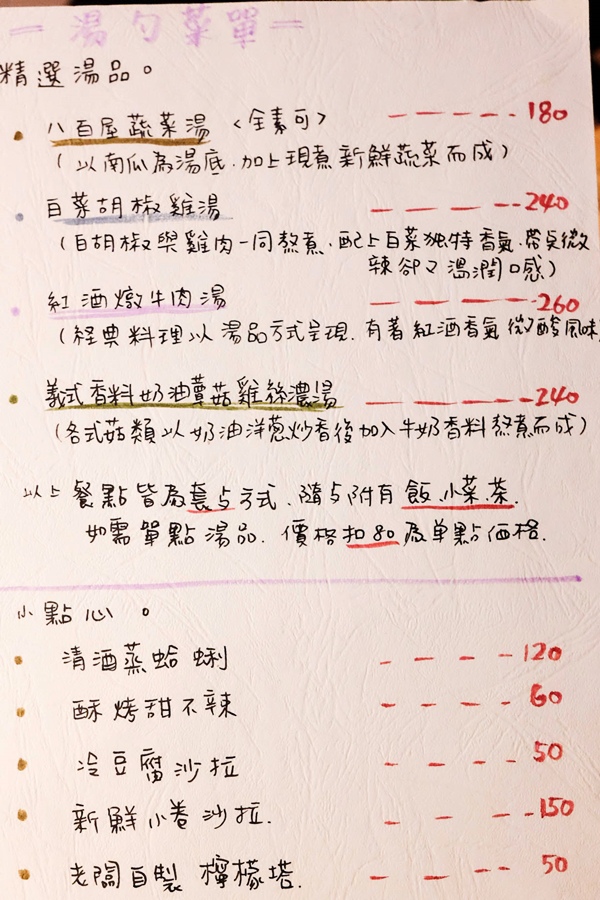 = 湯勺菜單 =
精選湯品。
八百屋蔬菜湯 <全素可> ----- 180
(以南瓜為湯底.加上現煮新鮮蔬菜而成)
白菜胡椒雞湯 ----- 240
(白胡椒與雞肉一同熬煮.配上白菜独特香氣.帶点微
辣卻又溫潤口感)
紅酒燉牛肉湯 ----- 260
(経典料理以湯品方式呈現.有著紅酒香氣微酸風味
義式香料奶油蕈菇雞絲濃湯 ---- 240
(各式菇類以奶油洋蔥炒香後加入牛奶香料熬煮而成)
以上餐點皆為套点方式.隨点附有飯.小菜.茶.
如需單點湯品.價格扣80為单點価格.
小點心。
清酒蒸蛤蜊 ---- 120
酥烤甜不辣 ---- 60
冷豆腐沙拉 ---- 50
新鮮小卷沙拉. ---- 150
老闆自製檸檬塔. ---- 50